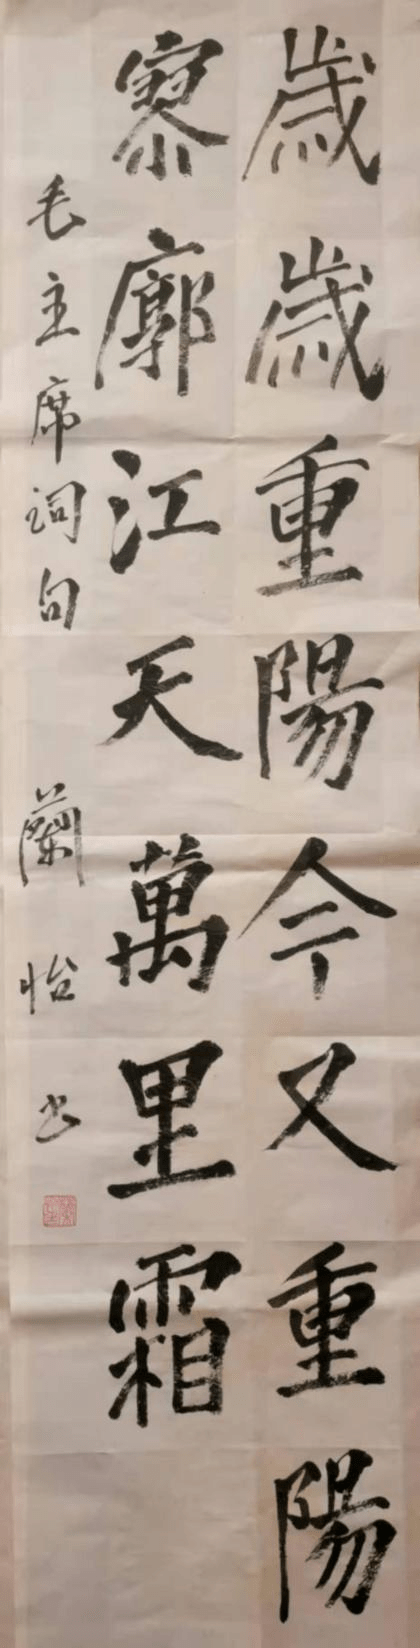 歲歲重陽今又重陽
寥廓江天萬里霜
毛主席詞句 蘭怡書